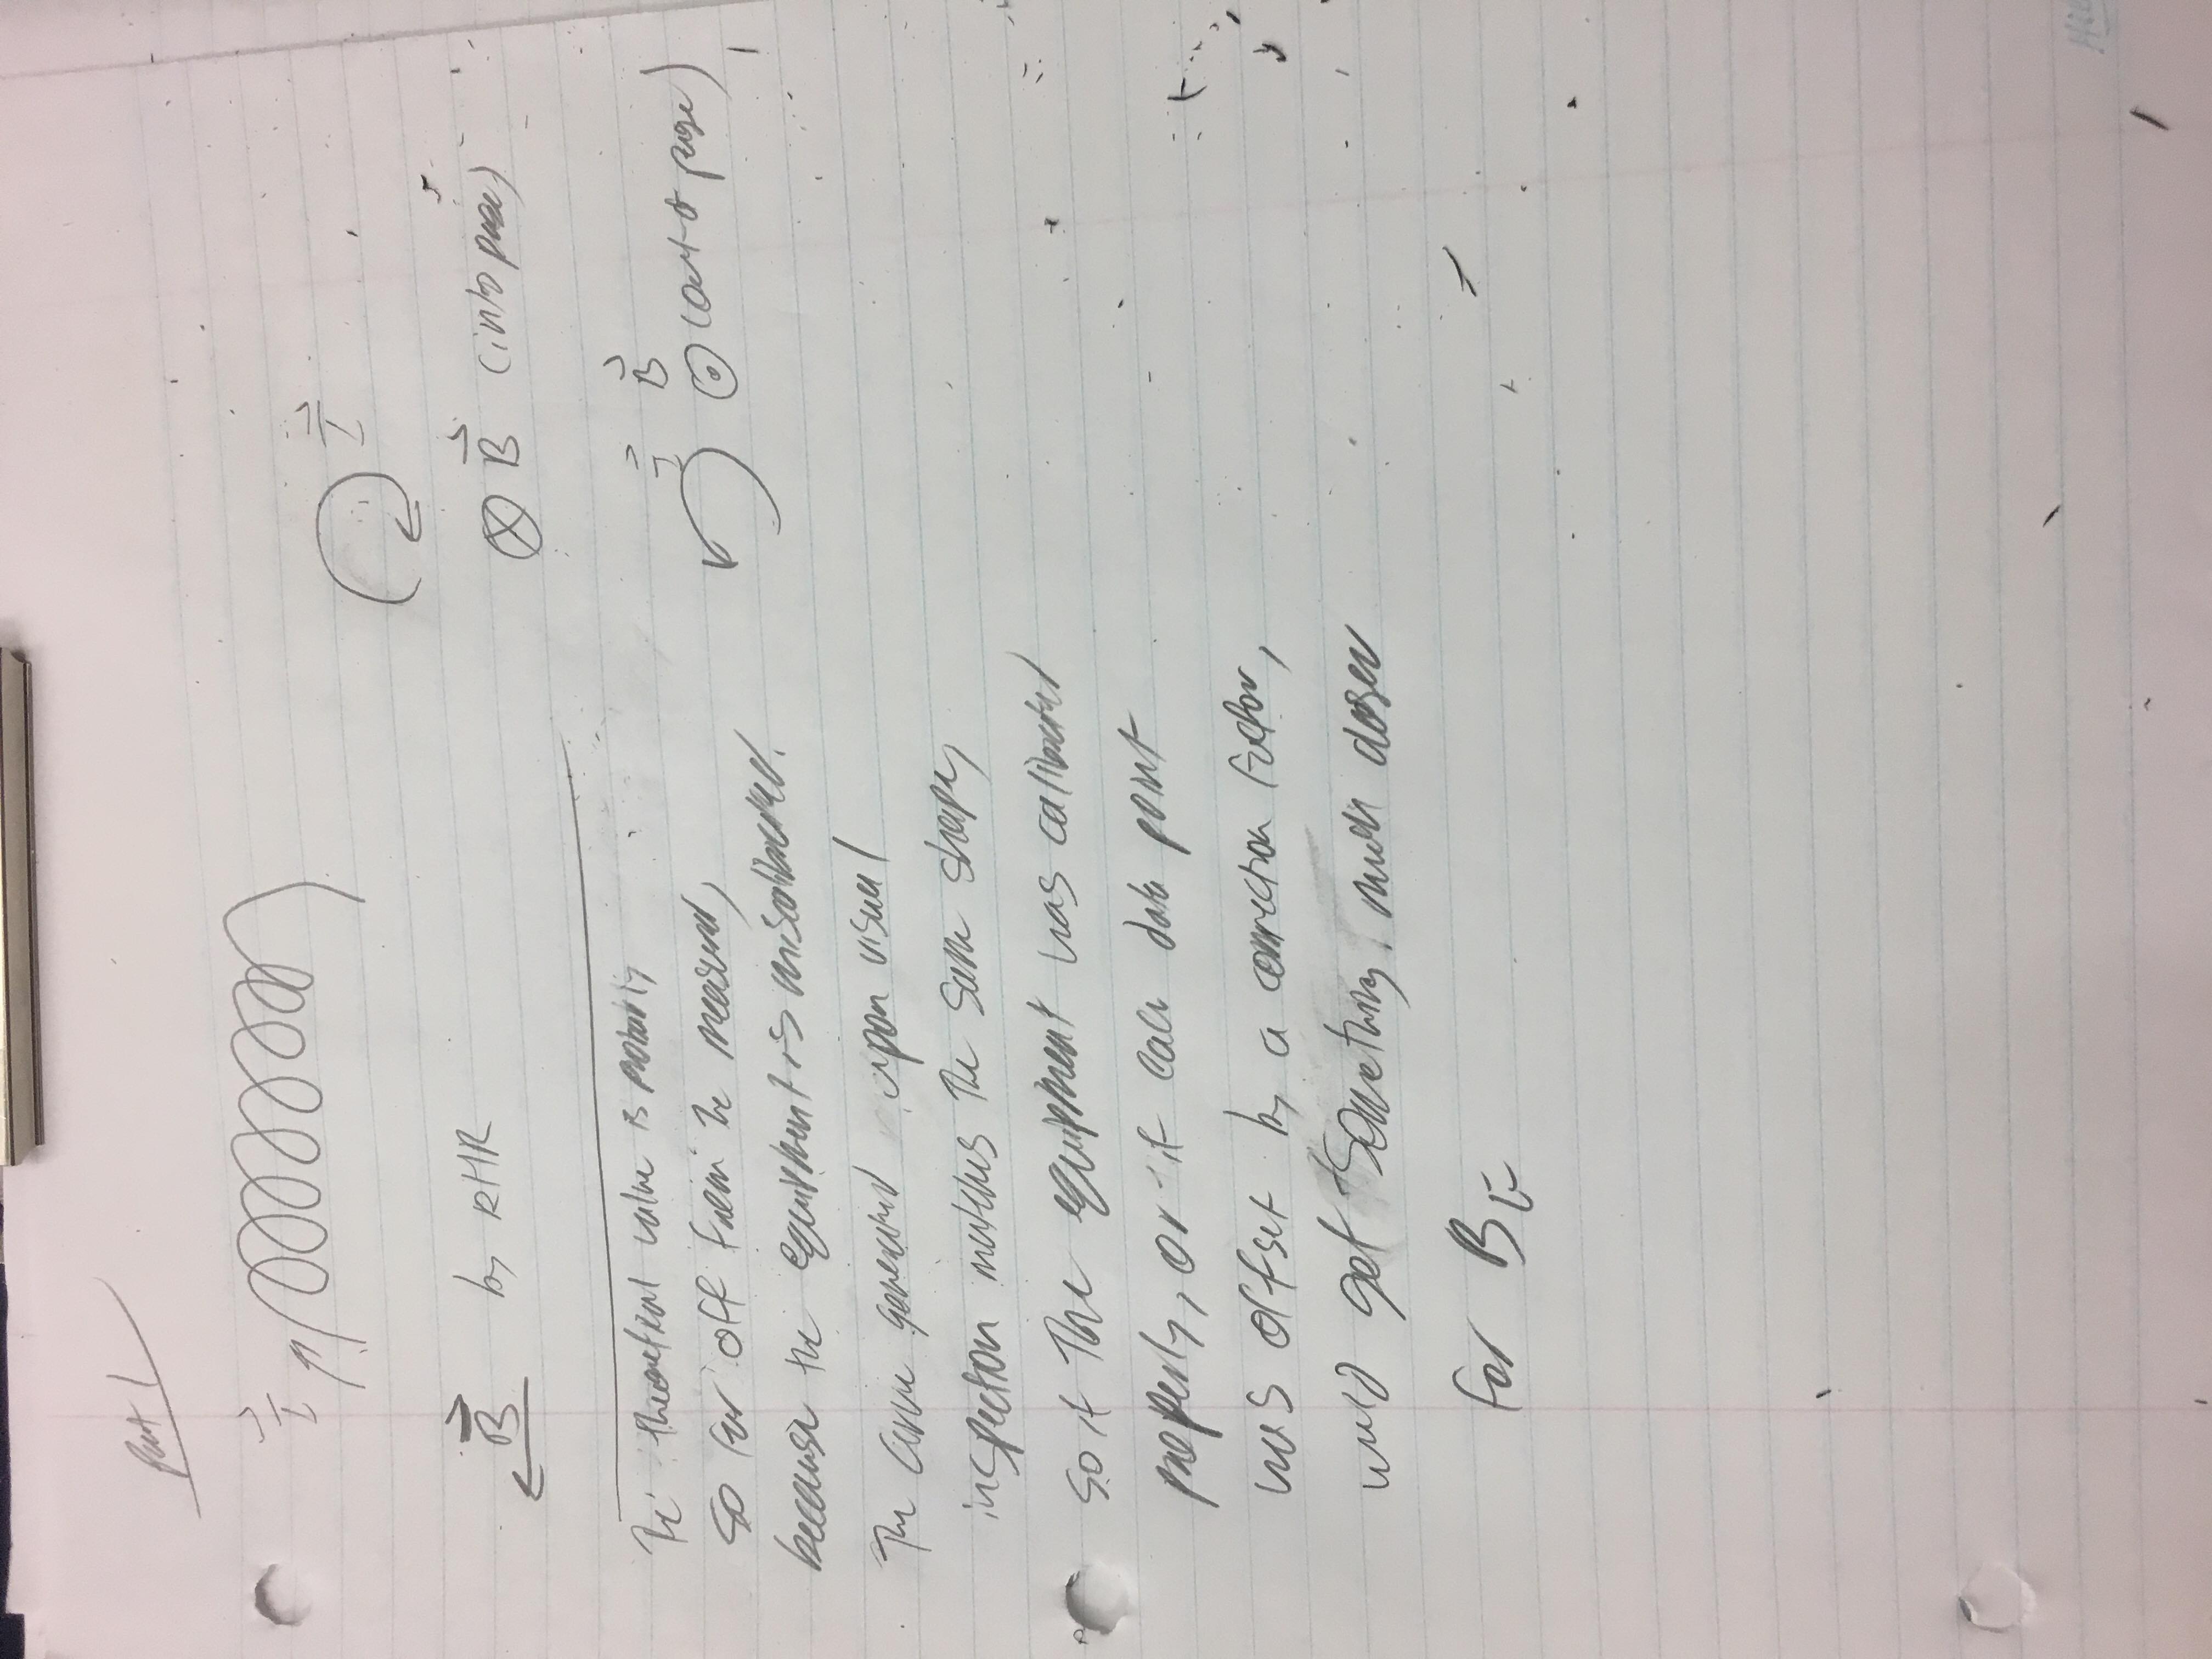 Part 1
I
B by RHR
I
B (into page)
I B
(out of page)
The theoretical value is probably
so far off from the measured,
because the equipment is miscalibrated.
The curve generated upon visual
inspection matches the same shape,
so if the equipment was calibrated
properly, or if each data point
was offset by a correction factor,
would get something much closer
for B_E